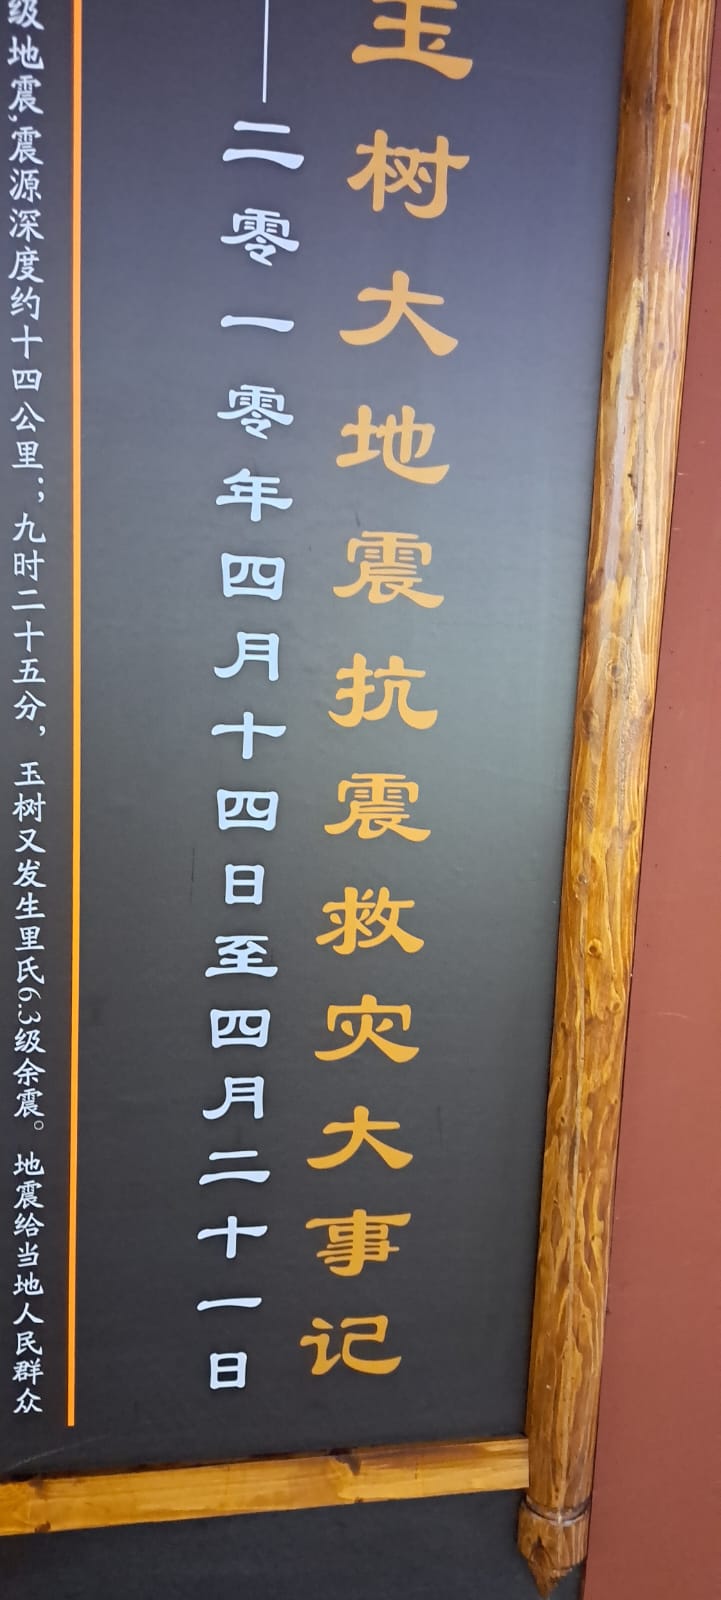 玉树大地震抗震救灾大事记
——二零一零年四月十四日至四月二十一日
级地震,震源深度约十四公里;九时二十五分,玉树又发生里氏6.3级余震。地震给当地人民群众